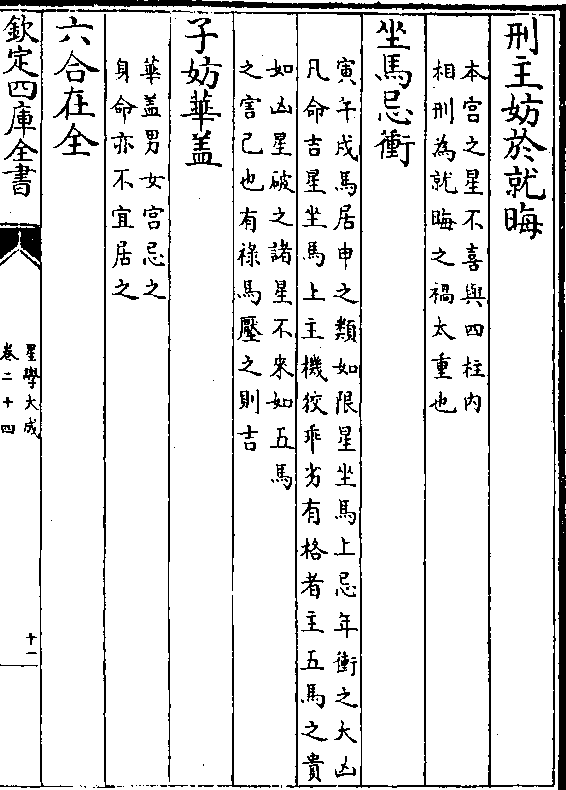 刑主妨於就晦
本宫之星不喜與四柱内
相刑為就晦之禍太重也
坐馬忌衝
寅午戌馬居申之類如限星坐馬上忌年衝之大凶
凡命吉星坐馬上主機狡乖劣有格者主五馬之貴
如凶星破之諸星不來如五馬
之害己也有祿馬壓之則吉
子妨華盖
華盖男女宫忌之
身命亦不宜居之
六合在全
欽定四庫全書
星學大成
卷二十四
十一